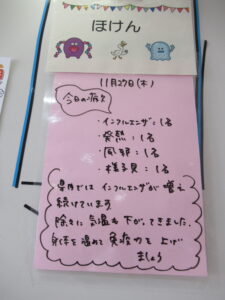 ほけん
11月27日(木)
今日の病欠
・インフルエンザ:1名
・発熱:1名
・風邪:1名
・様子見:1名
県内ではインフルエンザが増え
続けています
除々に気温も下がってきました
身体を温めて免疫力を上げ
ましょう